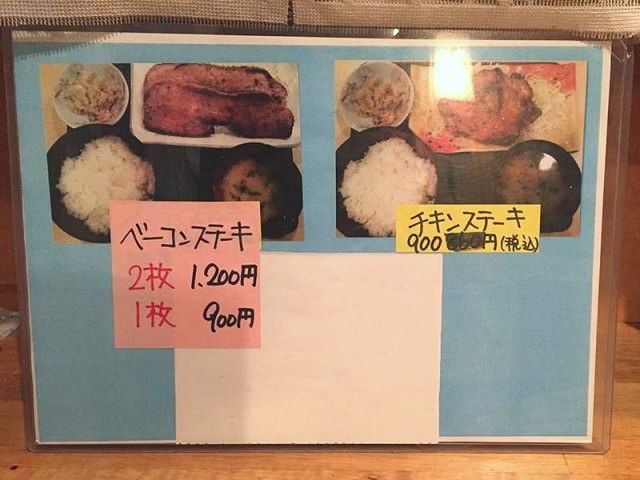 ベーコンステーキ
2枚 1.200円
1枚 900円
チキンステーキ
900円(税込)